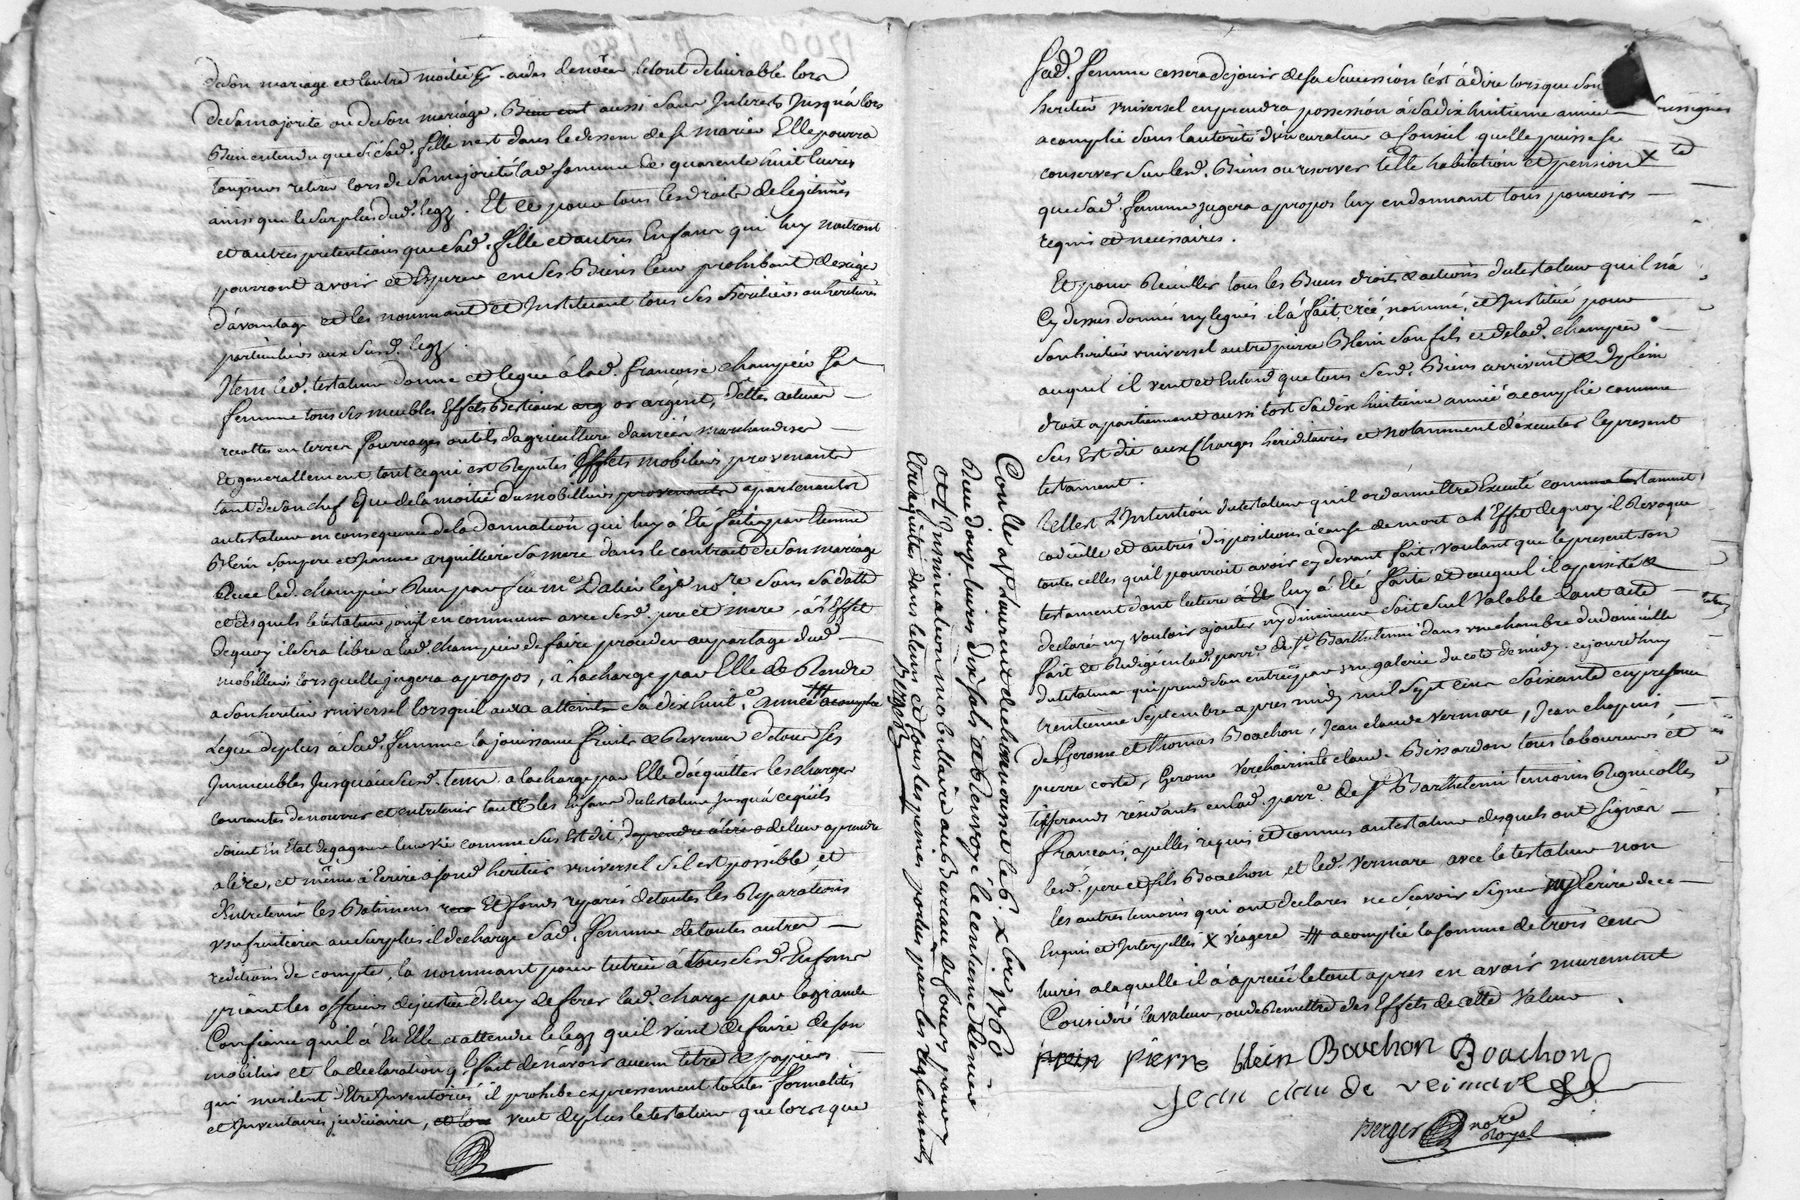 de son mariage et lautre moitié aud. denoces le tout delivrable lors
de sa majorité ou de son mariage. aussi sans Interests Jusqu'a lors
Bien entendu que si lad. fille nest dans le dessein de se marier Elle pourra
toujours retirer lors de sa majorité lad. somme de quarente huit livres
ainsi que le surplus dud. legz. Et ce pour tous les droits de legitimes
et autres pretentions que lad. fille et autres Enfans qui luy naitront
pourront avoir et Esperer en ses Biens leur prohibant d'exiger
d'avantage et les nommant et Instituant tous ses heritiers ou heritieres
particuliers aux susd. legz.
Item led. testateur donne et legue à lad. francoise champier sa
femme tous ses meubles Effets Bestiaux or argent, dettes actives
recoltes en terres fourrages outils dagriculture danrées marchandises
Et generallement tout ce qui est Reputés Effets mobiliers provenants
tant de son chef que de la moitié du mobilliers provenants apartenants
au testateur en consequence de la donnation qui luy à Eté faitte par Etienne
Blein son pere et Jeanne arquilliere sa mere dans le contrat de son mariage
avec lad. champier Reçu par feu me Dalier no.re sous sa datte
et desquels le testateur jouit en commun avec sesd. pere et mere, à l'Effet
dequoy il sera libre a lad. champier de faire proceder au partage dud.
mobiliers lorsquelle jugera apropos, à la charge par Elle de Rendre
a son heritier universel lorsquil aura atteint sa dix huit.e année acomplie
Legue de plus à sad. femme la jouissance fruits et Revenus de tous ses
Immeubles Jusquau susd. tems a la charge par Elle d'acquitter les charges
courantes de nourrir et entretenir tous les Enfans du testateur jusqu'a ce qu'ils
soient En Etat de gagner leur vie comme sus Est dit, de leur aprendre
a lire, et même à Ecrire a sond. heritier universel s'il est possible, et
d'Entretenir les Batimens et fonds reparés de toutes les Reparations
usufruitieres au surplus il decharge sad. femme de toutes autres
redditions de compte, la nommant pour tutrice à tous sesd. Enfans
priant les officiers de justice de luy deferer lad. charge par la grande
Confiance qu'il à En Elle et attendu le legz quil vient de faire de son
mobilier et la declaration quil fait de navoir aucun titre et papiers
qui meritent d'Etre Inventoriés il prohibe expressement toutes formalités
et Inventaires judiciaires, et veut de plus le testateur que lorsque
Conllé a St Laurent de chamousset le 6. xbre 1760
Reçu douze livres dix sols et Renvoyé le centieme denier
et l'Insinuation mobiliaire au Bureau de fours pour y
Etre acquittés dans le tems et sous les peines portés par les Reglements
sad. femme cessera de jouir de sa sucession c'est à dire lorsque son
heritier universel en prendra possession à sa dix huitieme année
acomplie sans l'autorité d'un curateur a conseil quelle puisse se
conserver sur lesd. Biens ou reserver telle habitation et pension X
que sad. femme jugera apropos luy en donnant tous pouvoirs
requis et necessaires.
Et pour Recuillir tous les Biens droits et actions du testateur qu'il n'a
Cy dessus donnés ny legués il à fait, créé, nommé, et Institué pour
son heritier universel autre pierre Blein son fils et de lad. champier
auquel il veut et Entend que tous sesd. Biens arrivent et de plein
droit apartiennent aussi tost sa dix huitieme année acomplie comme
sus Est dit aux Charges hereditaires et notamment d'executer le present
testament.
Telle est L'Intention du testateur qu'il ordonne Etre Executé comme testament
codicille et autres dispositions à cause de mort a l'Effet dequoy il Revoque
toutes celles quil pourroit avoir cy devant fait, voulant que le present son
testament dont lecture luy à Eté faite et auquel il à persisté et
declaré n'y vouloir ajouter ny diminuer soit seul Valable dont acte
fait et Redigé en lad. parr.e de St Barthelemi dans une chambre du domicille
du testateur qui prend son entrée par une galerie du coté de midy. cejourdhuy
trentieme Septembre apres midy mil sept cens soixante en presence
de Gerome et Thomas Boachon, Jean claude vermare, Jean chapuis,
pierre coste, Gerome claude Bissardon tous laboureurs et
tisserands residants en lad. parr.e de St Barthelemi temoins Regnicolles
francais, apellés requis et connus au testateur desquels ont signés
lesd. pere et fils Boachon et led. vermare avec le testateur non
les autres temoins qui ont declarés ne scavoir signer ny Ecrire de ce
Enquis et Interpellés X viagere # acomplie la somme de trois cens
livres a laquelle il à aprecié le tout apres en avoir murement
Consideré la valeur, ou de Remettre des Effets de cette Valeur.
pierre blein Boachon Boachon
Jean clau de veimare
Berger no.re
Royal